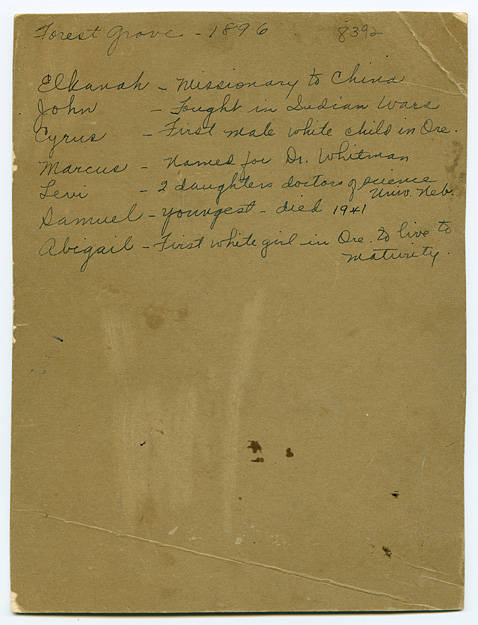 Forest Grove - 1896 8392
Elkanah - Missionary to China
John - Fought in Indian Wars
Cyrus - First male white child in Ore.
Marcus - Named for Dr. Whitman
Levi - 2 daughters doctors of science
Univ. Neb.
Samuel - youngest - died 1941
Abigail - First white girl in Ore. to live to
maturity.